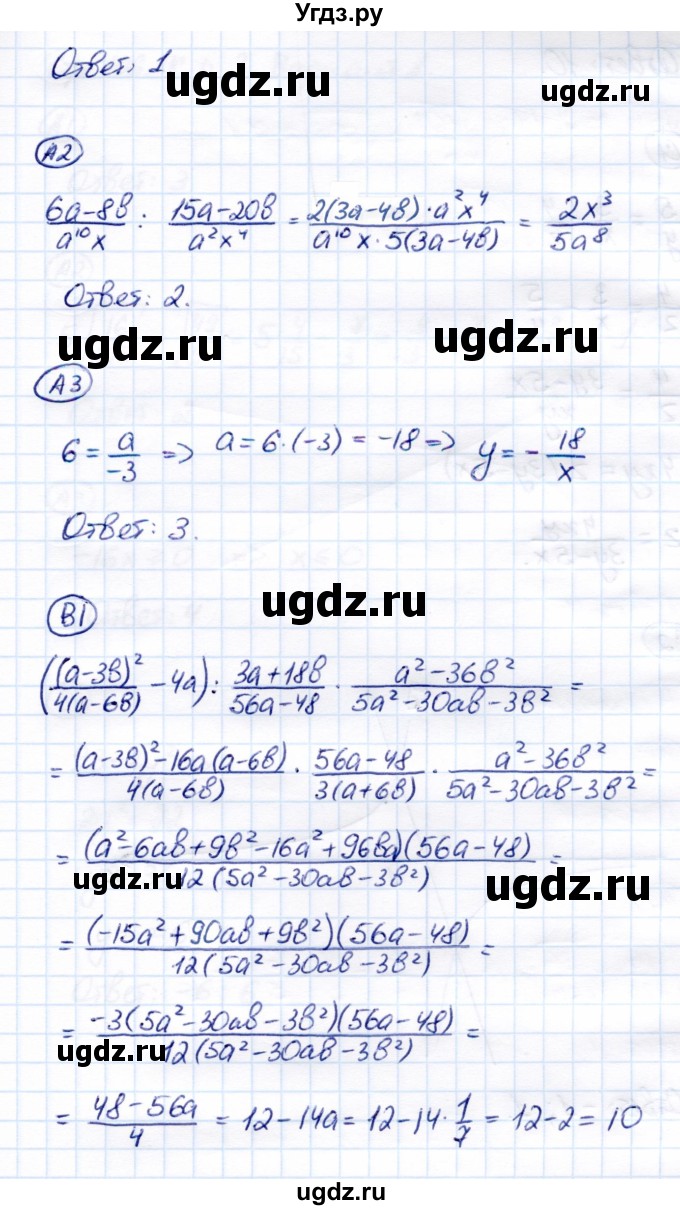 Угдз.ру
Ответ: 1
ugdz.ru
А2
(6a-8в)/(a¹⁰x) : (15a-20в)/(a²x⁴) = (2(3a-4в)·a²x⁴)/(a¹⁰x·5(3a-4в)) = 2x³/5a⁸
Ответ: 2.
ugdz.ru ugdz.ru
А3
6 = a/-3 => a = 6·(-3) = -18 => y = - 18/x
Ответ: 3.
ugdz.ru
В1
((a-3в)²/4(a-6в) - 4a) : (3a+18в)/(56a-48) · (a²-36в²)/(5a²-30aв-3в²) =
= ((a-3в)²-16a(a-6в))/4(a-6в) · (56a-48)/3(a+6в) · (a²-36в²)/(5a²-30aв-3в²) =
= (a²-6aв+9в²-16a²+96вa)(56a-48)/12(5a²-30aв-3в²) =
ugdz.ru ugdz.ru
= (-15a²+90aв+9в²)(56a-48)/12(5a²-30aв-3в²) =
= -3(5a²-30aв-3в²)(56a-48)/12(5a²-30aв-3в²) =
ugdz.ru
= (48-56a)/4 = 12-14a = 12-14·1/7 = 12-2 = 10
ugdz.ru